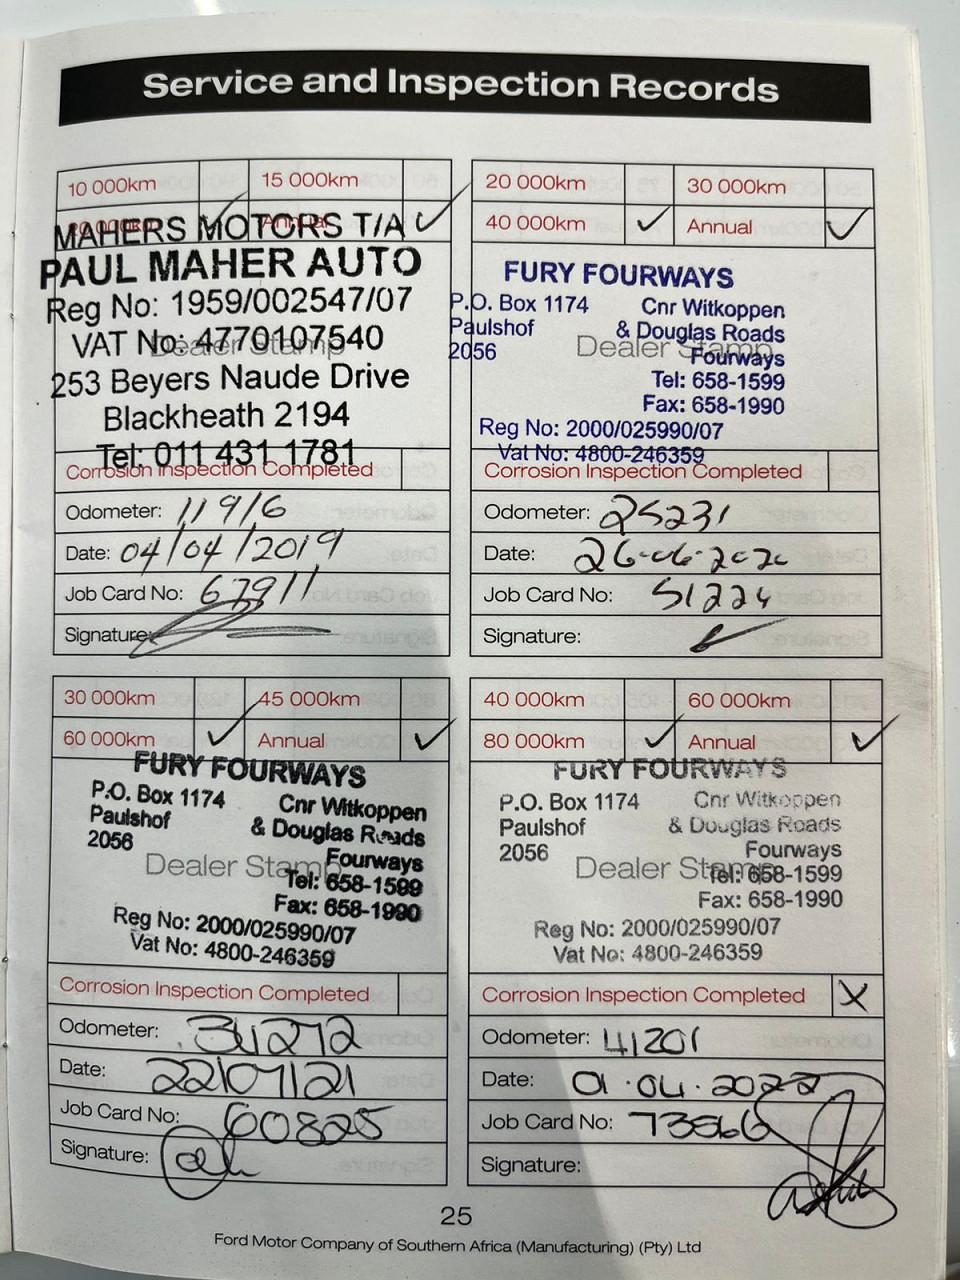 Service and Inspection Records
10 000km 15 000km
20 000km Annual
MAHERS MOTORS T/A
PAUL MAHER AUTO
Reg No: 1959/002547/07
VAT No: 4770107540
Dealer Stamp
253 Beyers Naude Drive
Blackheath 2194
Tel: 011 431 1781
Corrosion Inspection Completed
Odometer: 11916
Date: 04/04/2019
Job Card No: 67911
Signature:
20 000km 30 000km
40 000km Annual
FURY FOURWAYS
P.O. Box 1174 Cnr Witkoppen
Paulshof & Douglas Roads
2056 Fourways
Dealer Stamp
Tel: 658-1599
Fax: 658-1990
Reg No: 2000/025990/07
Vat No: 4800-246359
Corrosion Inspection Completed
Odometer: 25231
Date: 26-06-2020
Job Card No: 51224
Signature:
30 000km 45 000km
60 000km Annual
FURY FOURWAYS
P.O. Box 1174 Cnr Witkoppen
Paulshof & Douglas Roads
2056 Fourways
Dealer Stamp
Tel: 658-1599
Fax: 658-1990
Reg No: 2000/025990/07
Vat No: 4800-246359
Corrosion Inspection Completed
Odometer: 34272
Date: 22/07/21
Job Card No: 60825
Signature:
40 000km 60 000km
80 000km Annual
FURY FOURWAYS
P.O. Box 1174 Cnr Witkoppen
Paulshof & Douglas Roads
2056 Fourways
Dealer Stamp
Tel: 658-1599
Fax: 658-1990
Reg No: 2000/025990/07
Vat No: 4800-246359
Corrosion Inspection Completed X
Odometer: 41201
Date: 01.04.2022
Job Card No: 73566
Signature:
25
Ford Motor Company of Southern Africa (Manufacturing) (Pty) Ltd